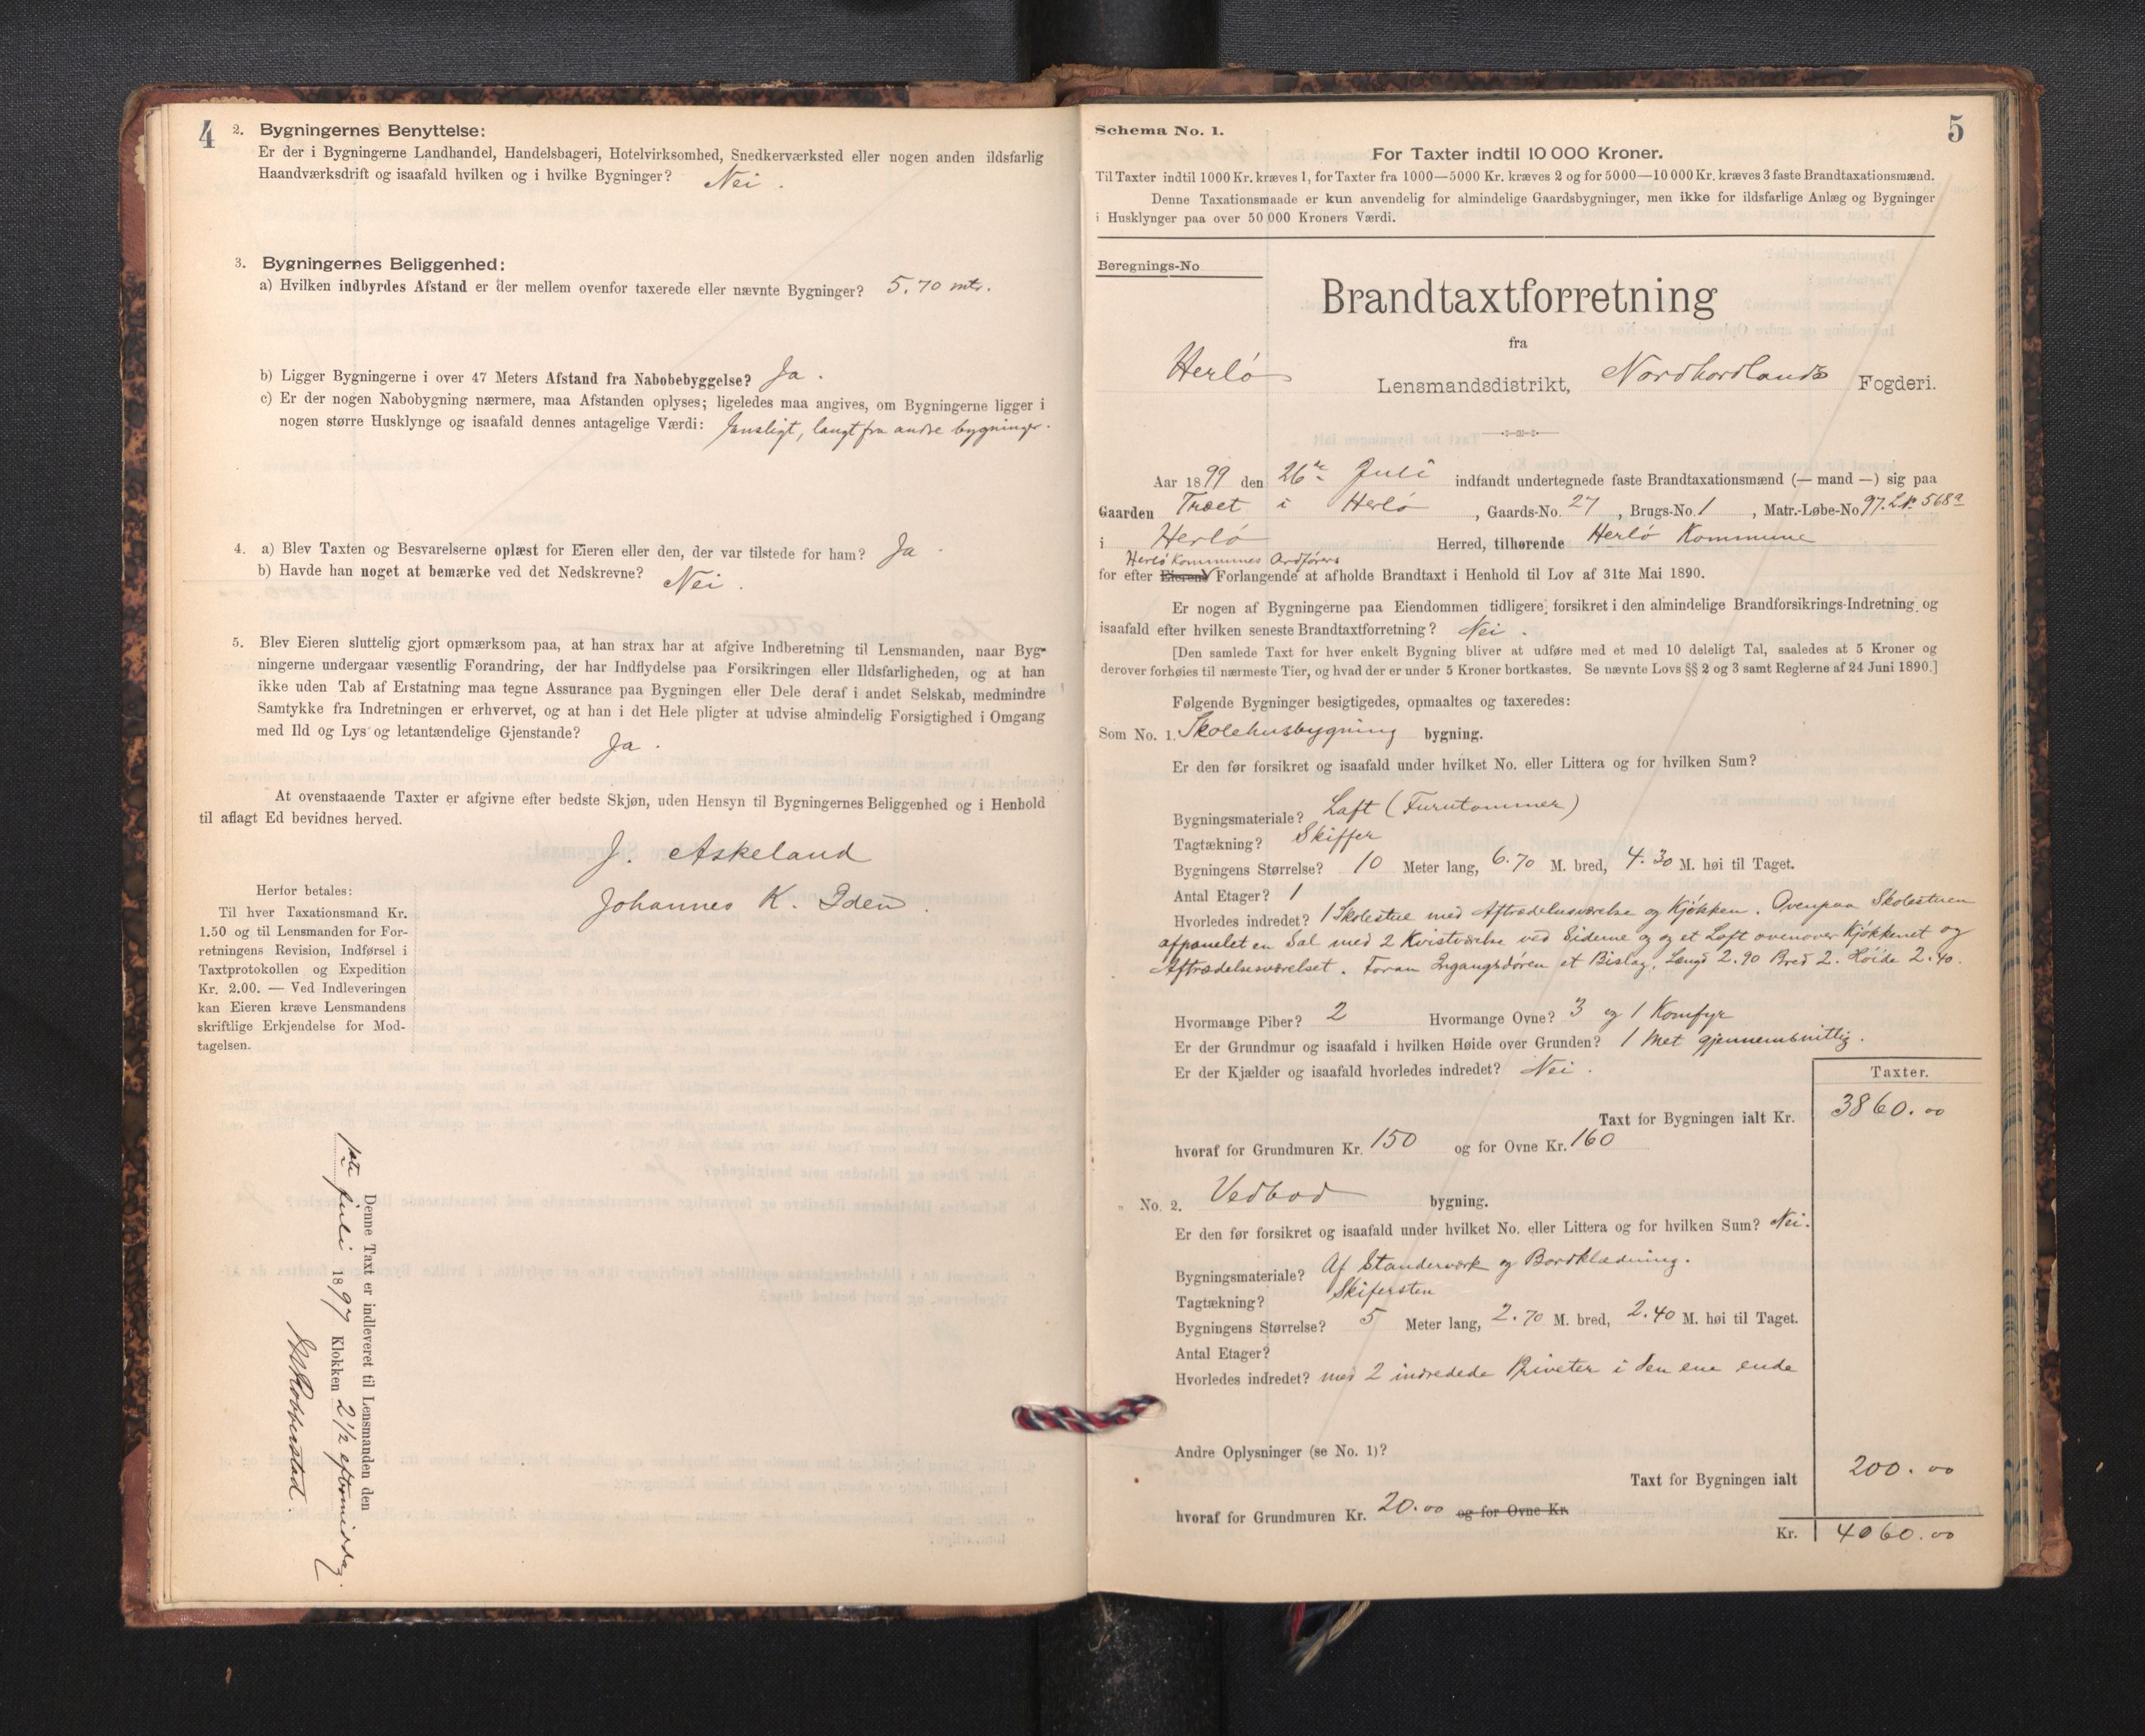 4
2. Bygningernes Benyttelse:
Er der i Bygningerne Landhandel, Handelsbageri, Hotelvirksomhed, Snedkerværksted eller nogen anden ildsfarlig
Haandværksdrift og isaafald hvilken og i hvilke Bygninger? Nei.
3. Bygningernes Beliggenhed:
a) Hvilken indbyrdes Afstand er der mellem ovenfor taxerede eller nævnte Bygninger? 5.70 mtr.
b) Ligger Bygningerne i over 47 Meters Afstand fra Nabobebyggelse? Ja.
c) Er der nogen Nabobygning nærmere, maa Afstanden oplyses; ligeledes maa angives, om Bygningerne ligger i
nogen større Husklynge og isaafald dennes antagelige Værdi: Ensligt, langt fra andre bygninger.
4. a) Blev Taxten og Besvarelserne oplæst for Eieren eller den, der var tilstede for ham? Ja.
b) Havde han noget at bemærke ved det Nedskrevne? Nei.
5. Blev Eieren sluttelig gjort opmærksom paa, at han strax har at afgive Indberetning til Lensmanden, naar Byg-
ningerne undergaar væsentlig Forandring, der har Indflydelse paa Forsikringen eller Ildsfarligheden, og at han
ikke uden Tab af Erstatning maa tegne Assurance paa Bygningen eller Dele deraf i andet Selskab, medmindre
Samtykke fra Indretningen er erhvervet, og at han i det Hele pligter at udvise almindelig Forsigtighed i Omgang
med Ild og Lys og letantændelige Gjenstande? Ja.
At ovenstaaende Taxter er afgivne efter bedste Skjøn, uden Hensyn til Bygningernes Beliggenhed og i Henhold
til aflagt Ed bevidnes herved.
J. Askeland
Johannes K. Iden.
Herfor betales:
Til hver Taxationsmand Kr.
1.50 og til Lensmanden for For-
retningens Revision, Indførsel i
Taxtprotokollen og Expedition
Kr. 2.00. — Ved Indleveringen
kan Eieren kræve Lensmandens
skriftlige Erkjendelse for Mod-
tagelsen.
Denne Taxt er indleveret til Lensmanden den
Juli 1897 Klokken 2 1/2 eftermiddag.
5
Schema No. 1.
For Taxter indtil 10 000 Kroner.
Til Taxter indtil 1000 Kr. kræves 1, for Taxter fra 1000—5000 Kr. kræves 2 og for 5000—10 000 Kr. kræves 3 faste Brandtaxationsmænd.
Denne Taxationsmaade er kun anvendelig for almindelige Gaardsbygninger, men ikke for ildsfarlige Anlæg og Bygninger
i Husklynger paa over 50 000 Kroners Værdi.
Beregnings-No
Brandtaxtforretning
fra
Herlö Lensmandsdistrikt, Nordhordlands Fogderi.
Aar 1899 den 26de Juli indfandt undertegnede faste Brandtaxationsmænd (— mand —) sig paa
Gaarden Træet i Herlö, Gaards-No. 27, Brugs-No. 1, Matr.-Løbe-No 97. L.N. 568a
i Herlö Herred, tilhørende Herlö Kommune
Herlö Kommunes Ordförers
for efter Eierens Forlangende at afholde Brandtaxt i Henhold til Lov af 31te Mai 1890.
Er nogen af Bygningerne paa Eiendommen tidligere forsikret i den almindelige Brandforsikrings-Indretning og
isaafald efter hvilken seneste Brandtaxtforretning? Nei.
[Den samlede Taxt for hver enkelt Bygning bliver at udføre med et med 10 deleligt Tal, saaledes at 5 Kroner og
derover forhøies til nærmeste Tier, og hvad der er under 5 Kroner bortkastes. Se nævnte Lovs §§ 2 og 3 samt Reglerne af 24 Juni 1890.]
Følgende Bygninger besigtigedes, opmaaltes og taxeredes:
Som No. 1. Skolehusbygning bygning.
Er den før forsikret og isaafald under hvilket No. eller Littera og for hvilken Sum?
Bygningsmateriale? Laft (Furutommer)
Tagtækning? Skiffer
Bygningens Størrelse? 10 Meter lang, 6.70 M. bred, 4.30 M. høi til Taget.
Antal Etager? 1
Hvorledes indredet? 1 Skolestue med Aftrædelsesværelse og Kjökken. Ovenpaa Skolestuen
afpanelet en Sal med 2 Kvistværelse ved Siderne og og et Loft ovenover Kjökkenet og
Aftrædelsesværelset. Foran Ingangsdören et Bislag, Længd 2.90 Bred 2. Höide 2.40.
Hvormange Piber? 2 Hvormange Ovne? 3 og 1 Komfyr
Er der Grundmur og isaafald i hvilken Høide over Grunden? 1 Met gjennemsnitlig.
Er der Kjælder og isaafald hvorledes indredet? Nei.
Taxter.
Taxt for Bygningen ialt Kr. 3860.00
hvoraf for Grundmuren Kr. 150 og for Ovne Kr. 160
" No. 2. Vedbod bygning.
Er den før forsikret og isaafald under hvilket No. eller Littera og for hvilken Sum? Nei.
Bygningsmateriale? Af Standerværk og Bordklædning.
Tagtækning? Skifersten
Bygningens Størrelse? 5 Meter lang, 2.70 M. bred, 2.40 M. høi til Taget.
Antal Etager?
Hvorledes indredet? med 2 indredede Priveter i den ene ende
Andre Oplysninger (se No. 1)?
Taxt for Bygningen ialt 200.00
hvoraf for Grundmuren Kr. 20.00 og for Ovne Kr.
Kr. 4060.00